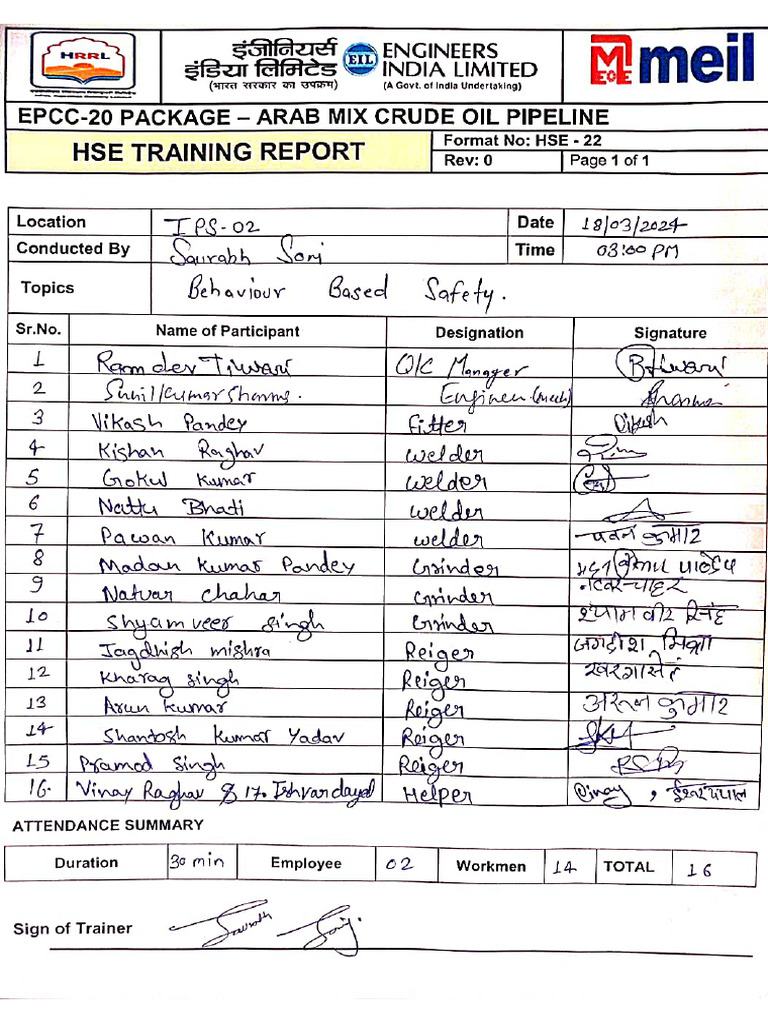 HRRL
इंजीनियर्स
इंडिया लिमिटेड
(भारत सरकार का उपक्रम)
EIL
ENGINEERS
INDIA LIMITED
(A Govt. of India Undertaking)
meil
EPCC-20 PACKAGE – ARAB MIX CRUDE OIL PIPELINE
HSE TRAINING REPORT
Format No: HSE - 22
Rev: 0 Page 1 of 1
Location IPS-02 Date 18/03/2024
Conducted By Saurabh Soni Time 03:00 PM
Topics Behaviour Based Safety.
Sr.No. Name of Participant Designation Signature
1 Ramdev Tiwari Q/C Manager BTiwari
2 Sunil Kumar Sharma. Engineer (mech) Sharma
3 Vikash Pandey fitter Vikash
4 Kishan Raghav welder
5 Gokul Kumar welder
6 Nattu Bhati welder
7 Pawan Kumar welder पवन कुमार
8 Madan Kumar Pandey Grinder
9 Natvar Chahar Grinder नटवर चाहर
10 Shyamveer Singh Grinder श्याम वीर सिंह
11 Jagdhish mishra Reiger जगदीश मिश्रा
12 Kharag singh Reiger
13 Arun Kumar Reiger अरून कुमार
14 Shantosh Kumar Yadav Reiger
15 Pramod Singh Reiger
16. Vinay Raghav & 17. Ishvardayal Helper Vinay,
ATTENDANCE SUMMARY
Duration 30 min Employee 02 Workmen 14 TOTAL 16
Sign of Trainer Saurabh Soni